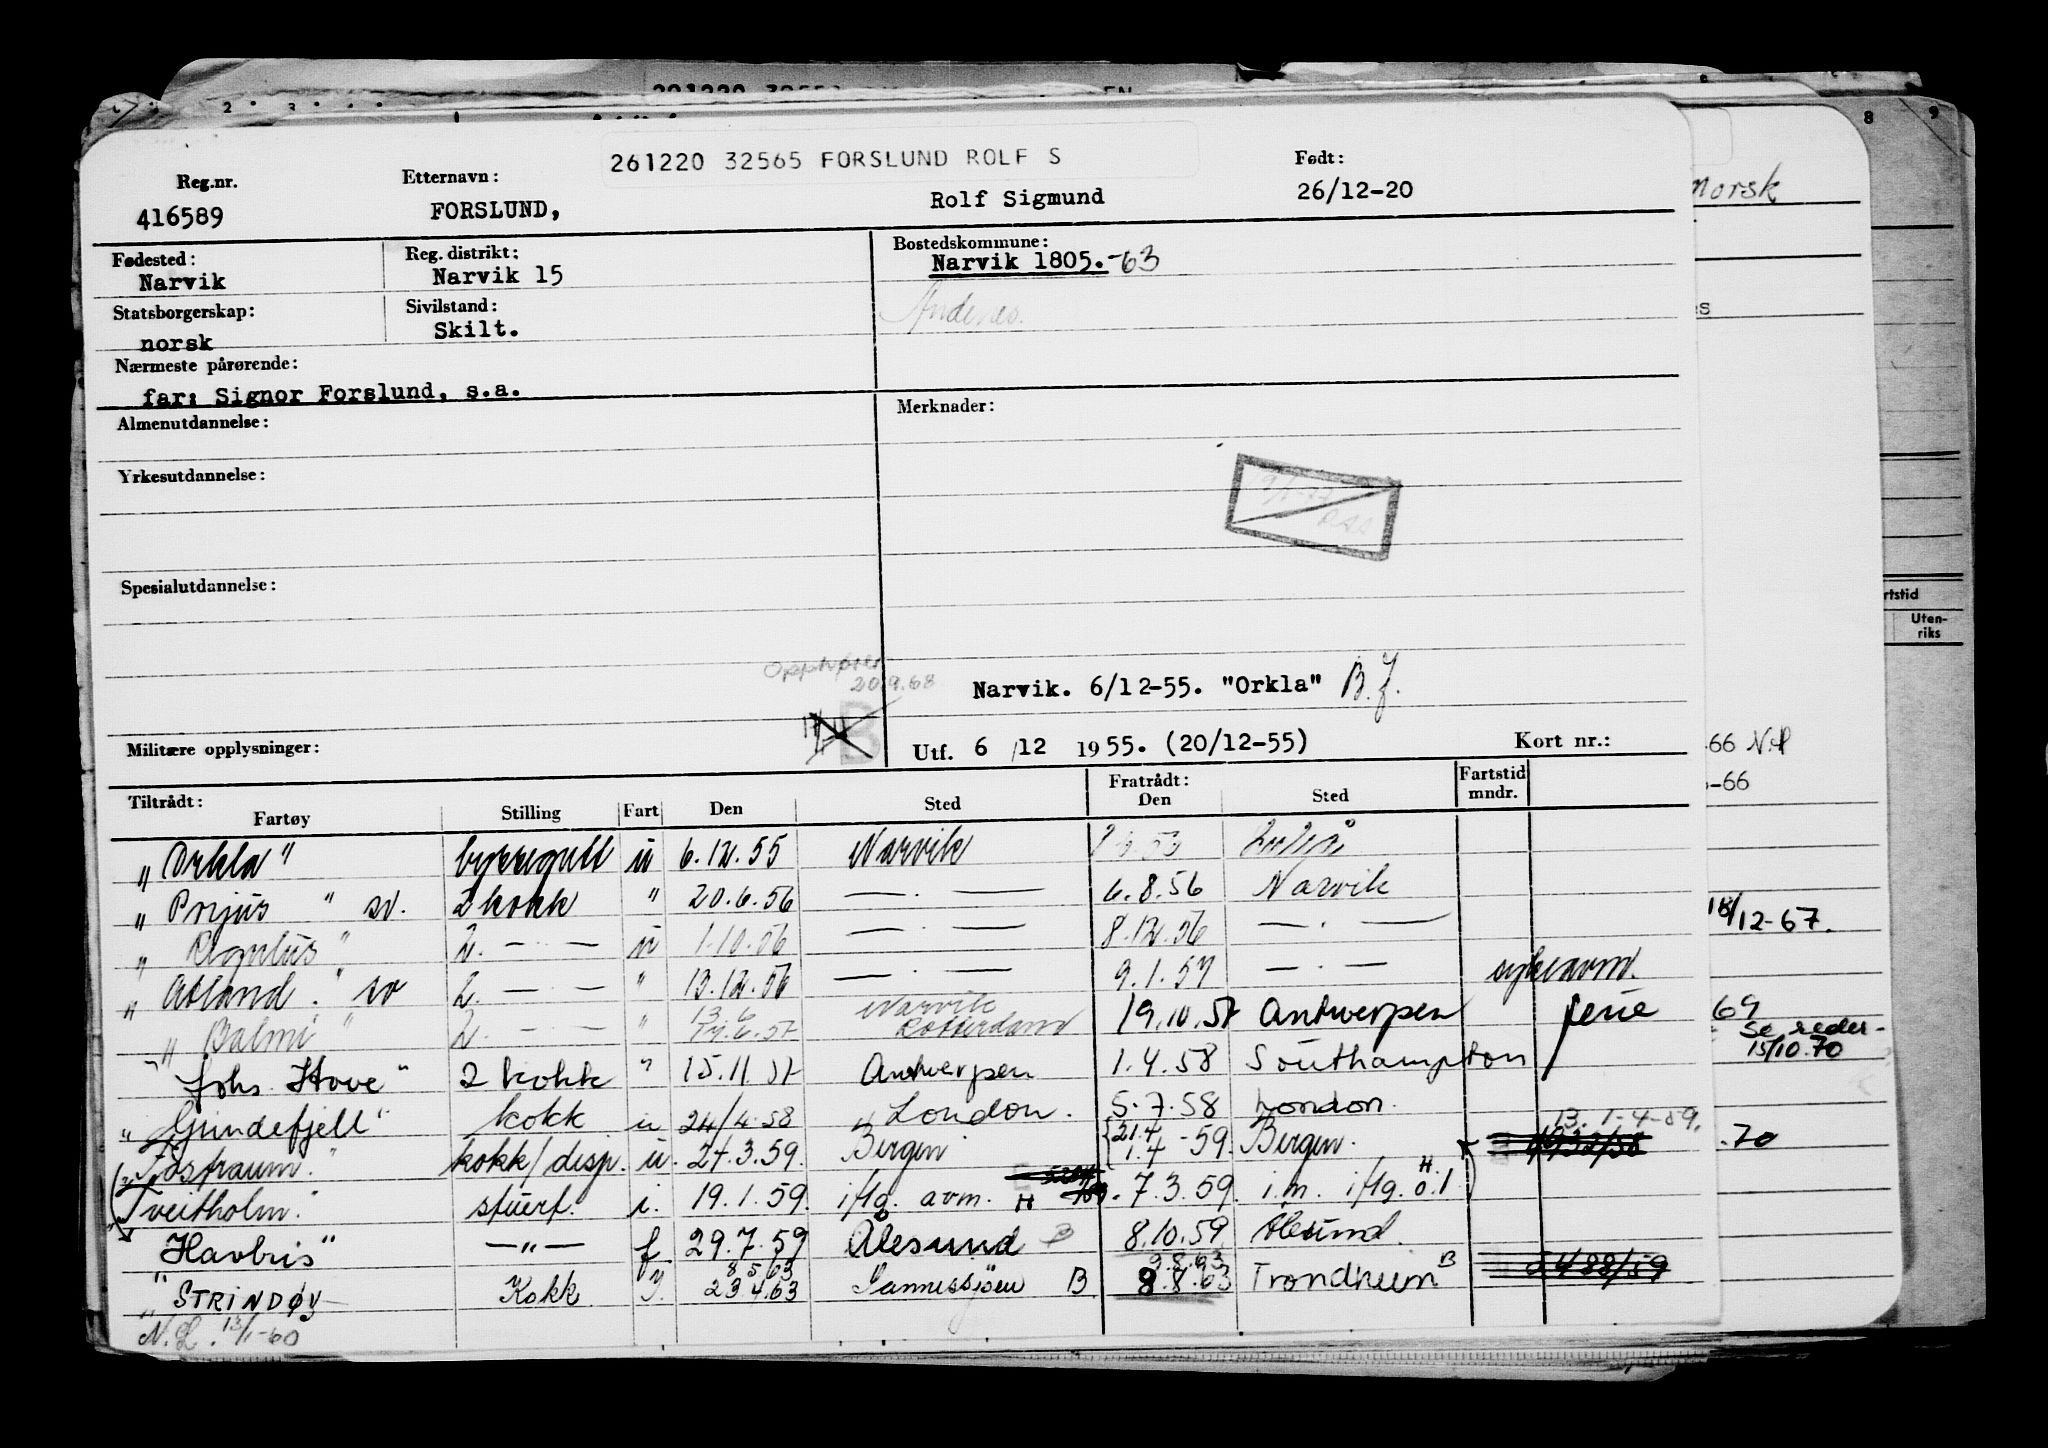 261220 32565 FORSLUND ROLF S
Reg.nr. Etternavn: Født:
416589 FORSLUND, Rolf Sigmund 26/12-20
Fødested: Reg. distrikt: Bostedskommune:
Narvik Narvik 15 Narvik 1805.-63
Statsborgerskap: Sivilstand: Andenes.
norsk Skilt.
Nærmeste pårørende:
far: Signor Forslund, s.a.
Almenutdannelse: Merknader:
Yrkesutdannelse:
Spesialutdannelse:
20.9.68
Narvik. 6/12-55. "Orkla" B.f.
B
Militære opplysninger: Utf. 6 /12 1955. (20/12-55) Kort nr.:
Tiltrådt: Fratrådt: Fartstid
Fartøy Stilling Fart Den Sted Den Sted mndr.
"Orkla" byssegutt u 6.12.55 Narvik
"Porjus" sv. 2 kokk " 20.6.56 — . — 6.8.56 Narvik
"Regulus" 2. — " — u 1.10.56 — . — 8.12.56 — . —
"Abland." sv 2. — " — " 13.12.56 — . — 9.1.57 — . — sykeavm.
13.6 Narvik
"Balmi" 2. — " — " 14.6.57 Rotterdam 19.10.57 Antwerpen ferie
"Johs. Hove" 2 kokk " 15.11.57 Antwerpen 1.4.58 Southampton
"Gundefjell" kokk u 24/4-58 London. 5.7.58 London.
13. 1-4-59.
"Fostraum." kokk/disp. u. 27.3.59. Bergen 1.4-59. Bergen.
"Tveitholm." stuert. i. 19.1.59. i flg. avm. H 7.3.59. i.m. i flg. H.ö.l
"Havbris" — " — f 29.7.59 Ålesund B 8.10.59 Ålesund.
8 5.63 9.8.63
"STRINDØY Kokk I. 23 4.63 Sannessjøen B 8.8.63 Trondheim B
N.L. 13/1-60
Norsk
-66 N.S
-66
18/12-67.
69
Se reder-
15/10.70
.70
Uten-
riks